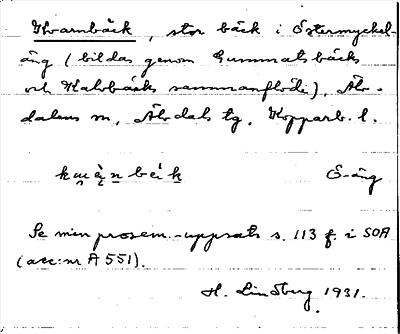 Kvarnbäck, stor bäck i Östermyckel-
äng (bildas genom Gummatsbäcks
och Kalvbäcks sammanflöde), Älv-
dalens sn, Älvdals tg, Kopparb. l.
Ö-äng
Se min prosem.-uppsats s. 113 f. i SOA
(acc:nr A 551).
H. Lindberg 1931.